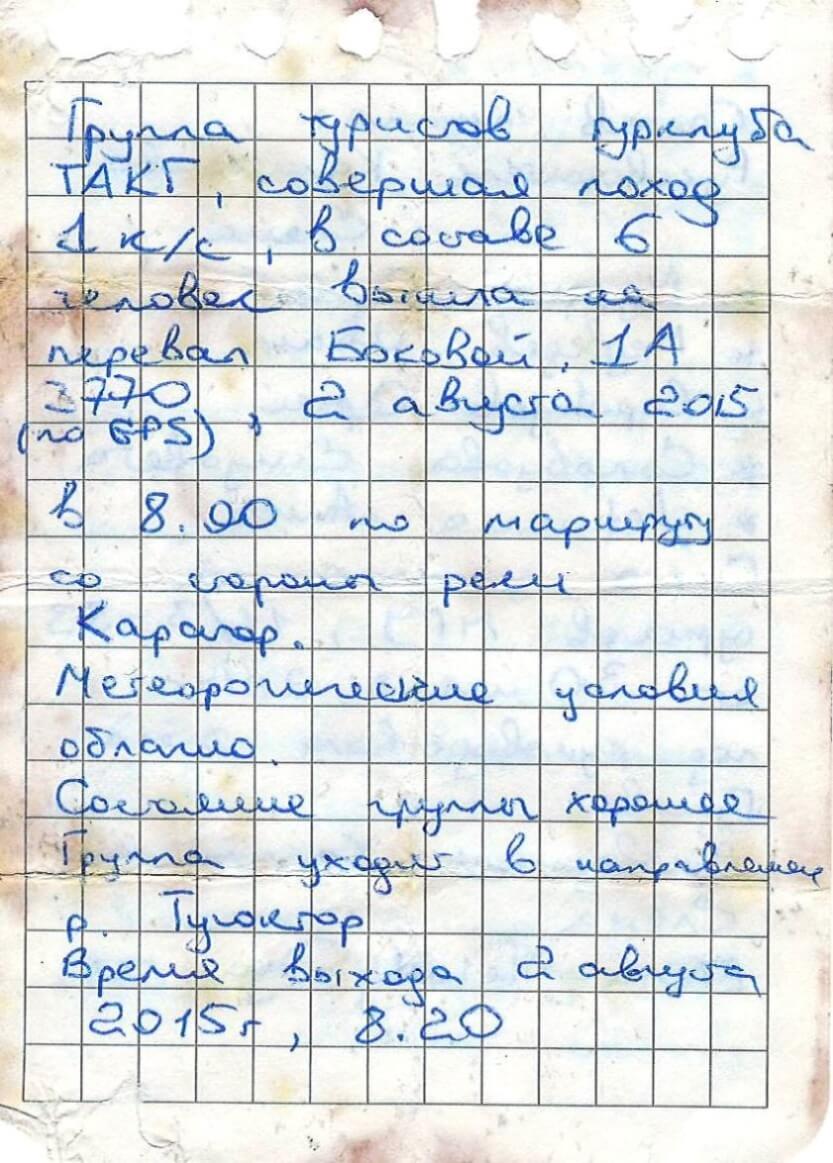 Группа туристов турклуба
ТАКТ, совершая поход
1 к/с, в составе 6
человек вышла на
перевал Боковой, 1А
3770
(по GPS), 2 августа 2015
в 8.00 по маршруту
со стороны реки
Карагор.
Метеорогические условия
облачно.
Состояние группы хорошее
Группа уходит в направлении
р. Тугоктор
Время выхода 2 августа
2015г, 8.20